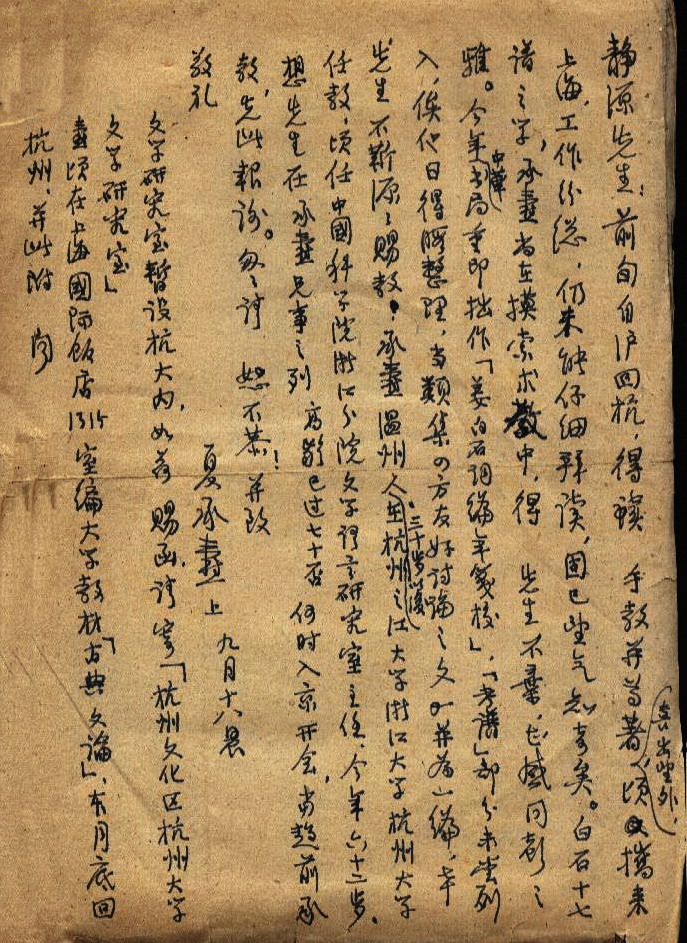 静源先生：前旬自沪回杭，得读 手教并尊著，喜出望外，顷又携来
上海，工作纷繁，仍未能仔细拜读，固已望气知奇矣。白石十七
谱之学，承焘尚在摸索求教中，得 先生不弃，感同
雅。今年中华书局重印拙作「姜白石词编年笺校」，「考谱」部分未尝列
入，俟他日得暇整理，当类集四方友好讨论之文并为一编，幸
先生不靳源々赐教！承焘温州人，三十岁以后在杭州之江大学浙江大学杭州大学
任教，顷任中國科学院浙江分院文学语言研究室主任，今年六十二岁，
想先生在承焘兄事之列 高龄已过七十否 何时入京开会，当趋前承
教，先此报谢。匆々请 恕不恭！并致
敬礼
夏承焘上 九月十八晨
文学研究室暂设杭大内，如荷 赐函，请寄「杭州文化区杭州大学
文学研究室」
焘顷在上海國际饭店1315室编大学教材「古典文论」，本月底回
杭州，并此附 闻